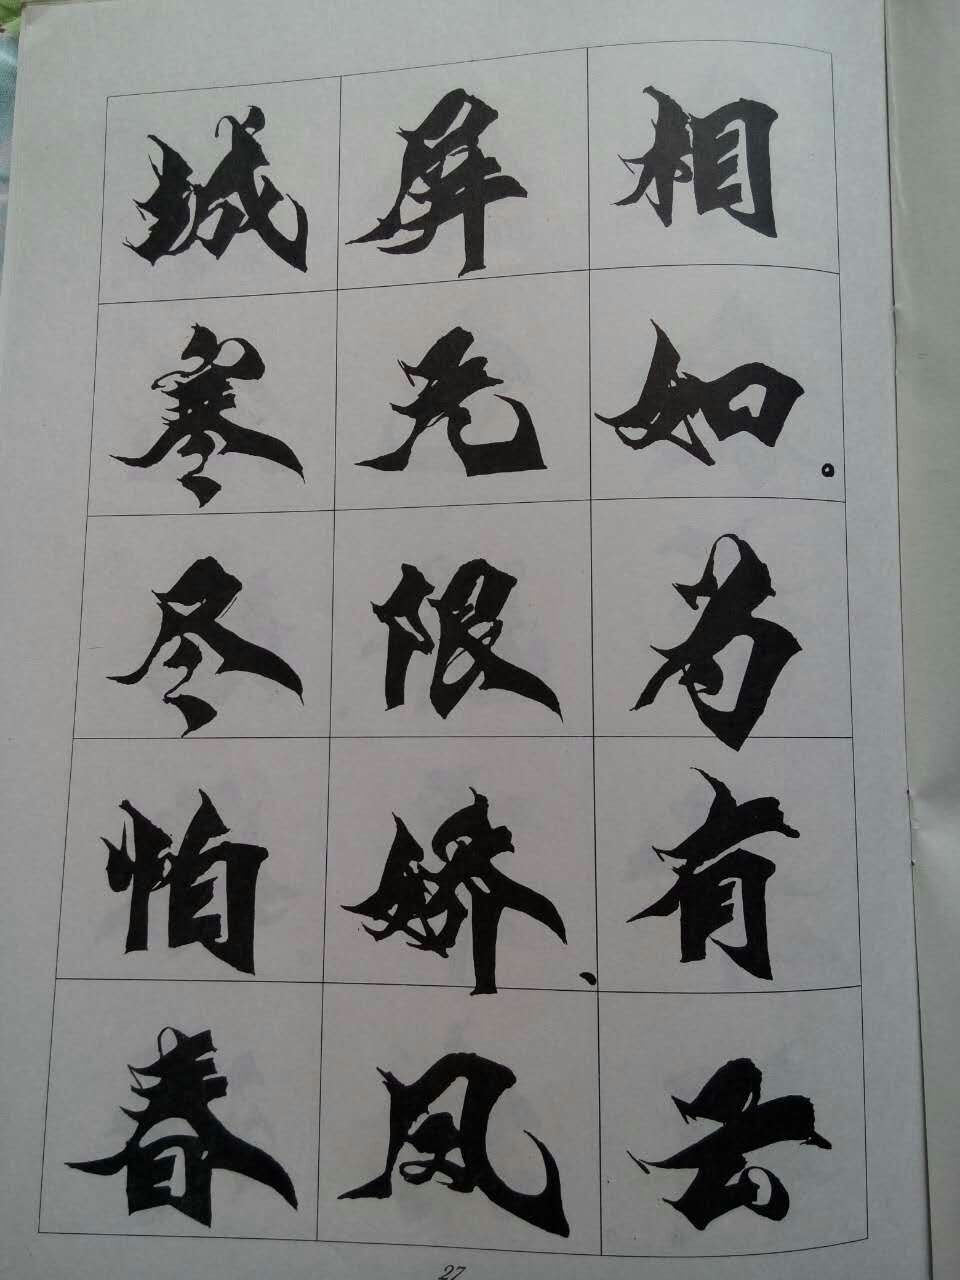 相如。为有云
屏无限娇、凤
城寒尽怕春
27